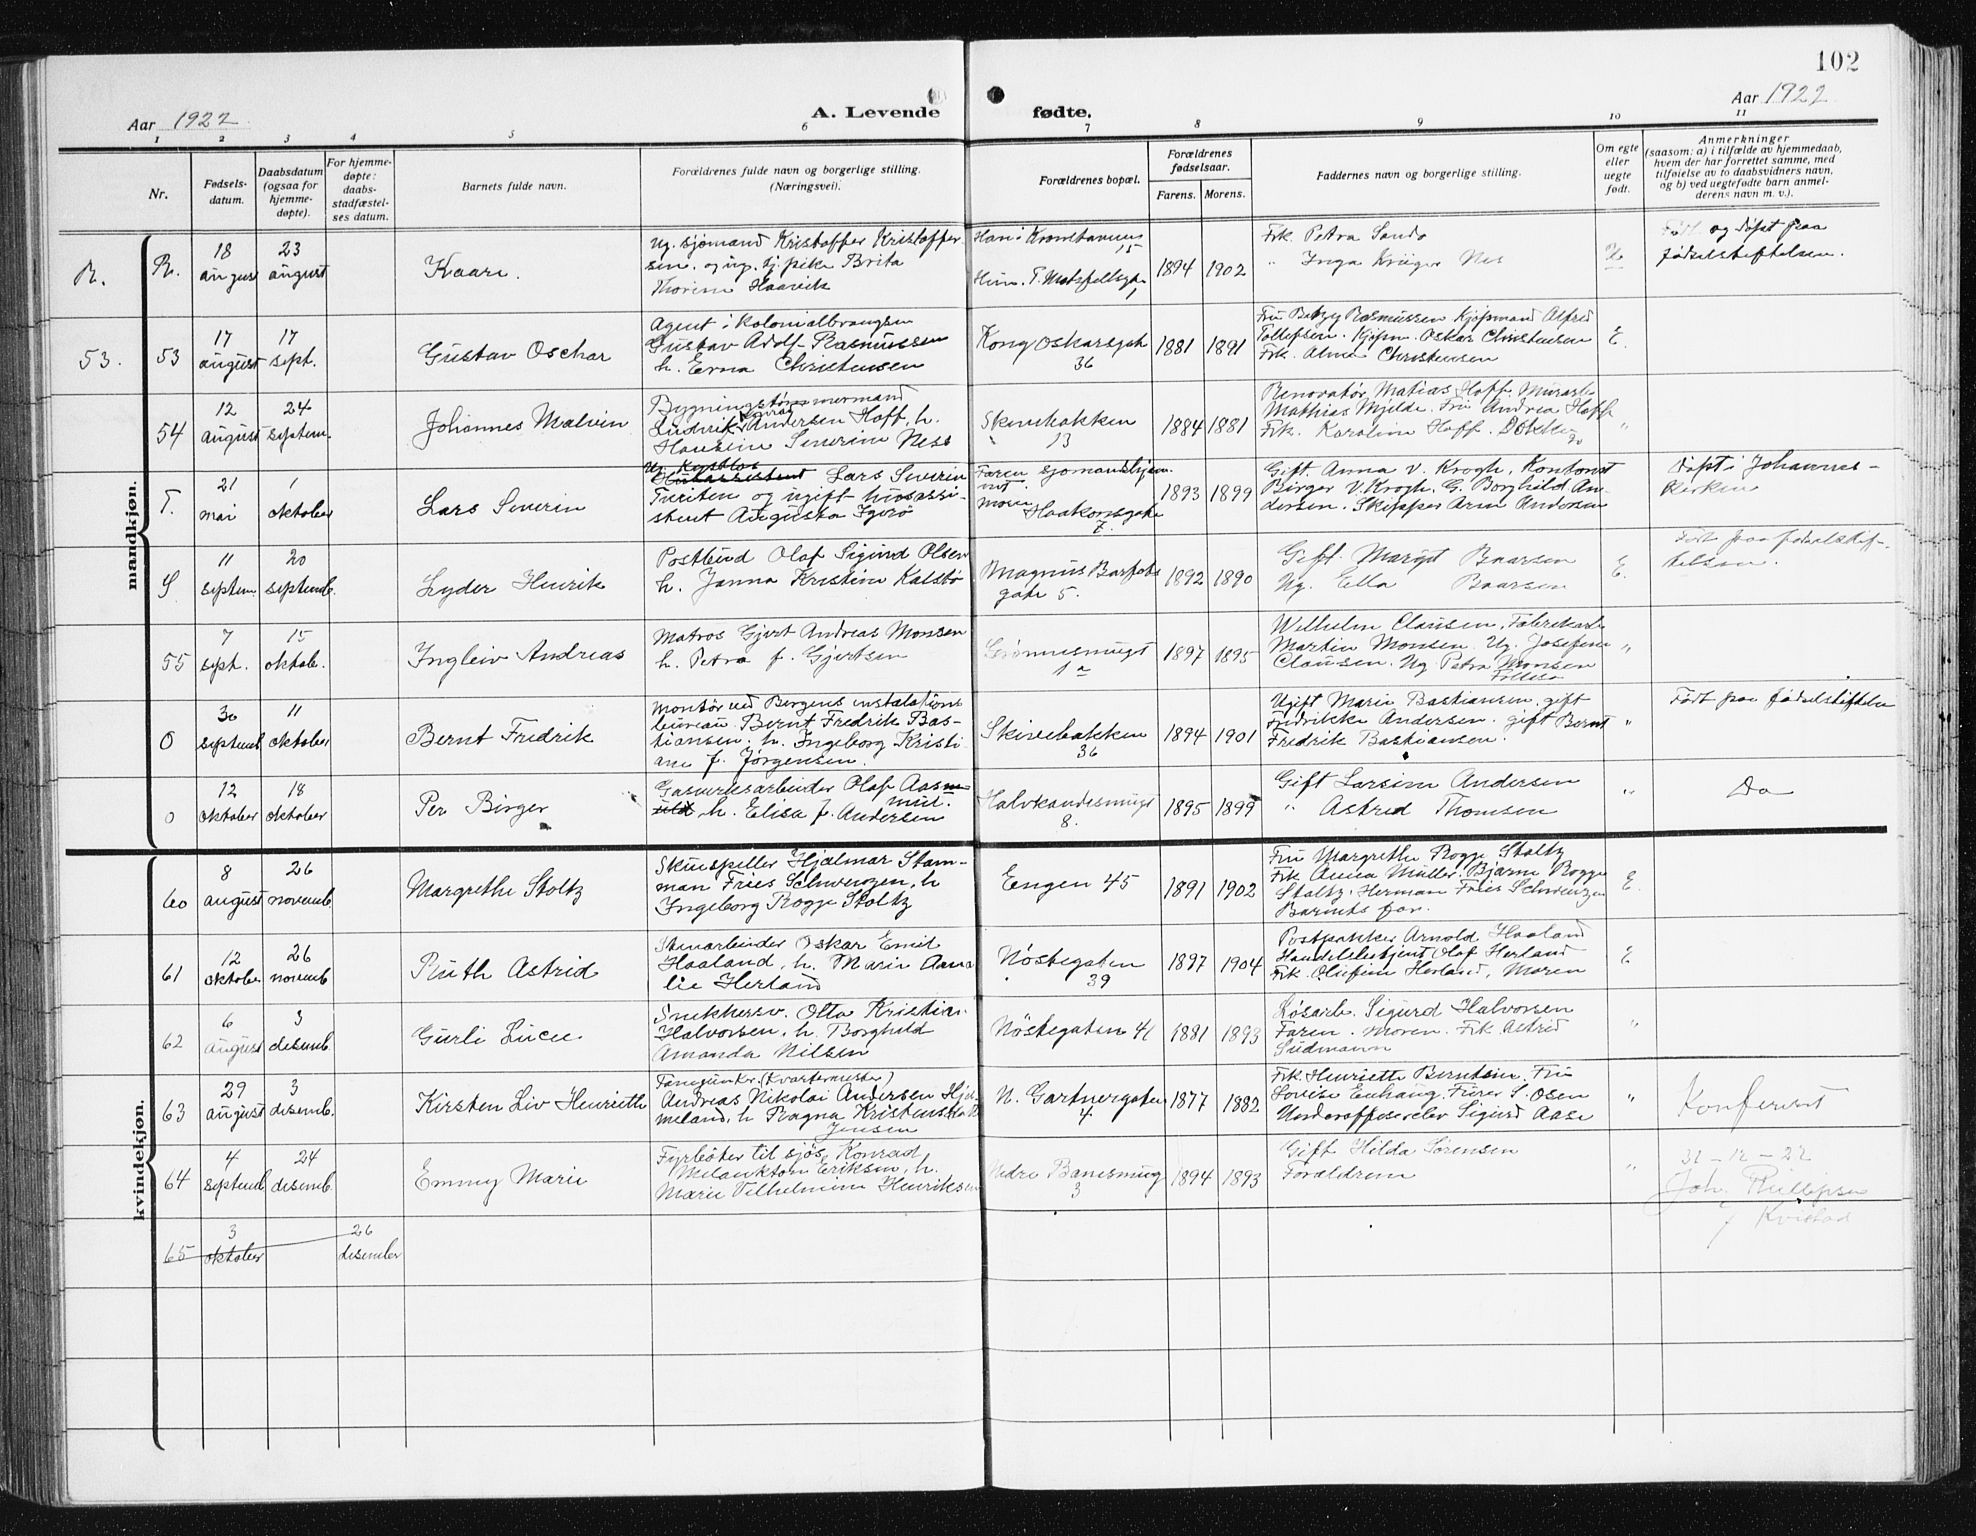 102
Aar 1922.
A. Levende fødte.
Aar 1922.
1 2 3 4 5 6 7 8 9 10 11
Nr.
Fødsels-
datum.
Daabsdatum
(ogsaa for
hjemme-
døpte).
For hjemme-
døpte:
daabs-
stadfæstel-
ses datum.
Barnets fulde navn.
Forældrenes fulde navn og borgerlige stilling.
(Næringsvei).
Forældrenes bopæl.
Forældrenes
fødselsaar.
Farens. Morens.
Faddernes navn og borgerlige stilling.
Om egte
eller
uegte
født.
Anmerkninger
(saasom: a) i tilfælde av hjemmedaab,
hvem der har forrettet samme, med
tilføielse av to daabsvidners navn,
og b) ved uegtefødte barn anmel-
derens navn m. v.).
mandkjøn.
R. R.
18
august
23
august
Kaare.
Ug. sjømand Kristoffer Kristoffer-
sen. og ug. tj. pike Brita
Thorine Haavik
15
1
1894 1902
Frk. Petra Sando
" Inga Krüger Nes
U
Født og døpt paa
fødselstiftelsen.
53. 53
17
august
17
sept.
Gustav Oschar
Agent i kolonialbrangsen
Gustav Adolf Rasmussen
h. Erna Christensen
Kong Oskarsgate
36
1881 1891
Fru Betzy Rasmussen Kjøpmand Alfred
Tollefsen. Kjøpm. Oskar Christensen
Frk. Alma Christensen
E.
54
12
august
24
septem.
Johannes Malvin
Bygningstømmermand
Ludvik Andersen Hoff, h.
Hansine Severine Ness
Skivebakken
13
1884 1881
Renovatør Matias Hoff. Murarb.
Mathias Mjelde. Fru Andrea Hoff
Frk. Karoline Hoff.
"
T.
21
mai
1
oktober
Lars Severin
Lars Severin
Tveiten og ugift husassi-
stent Augusta
Faren sjømandshjem-
met
Moren Haakonsgate
7
1893 1899
Gift. Anna v. Krogh, Kontorist
Birger v. Krogh. G. Borghild An-
dersen. Skipper Arne Andersen
Døpt i Johannes-
kirken
S
11
septem.
20
septemb.
Lyder Henrik
Postbud Olaf Sigurd Olsen
h. Janna Kristine Kalstø
Magnus Barfots
gate 5.
1892 1890
Gift. Margit Baarsen
Ug. Ella Baarsen
E.
Født paa fødselstif-
telsen.
55
7
sept.
15
oktob.
Ingleiv Andreas
Matros Gjert Andreas Monsen
h. Petra f. Gjertsen
Grønnesmuget
1a
1897 1895
Wilhelm Clausen, Fabrikarb.
Martin Monsen. Ug. Josefine
Clausen. Ug. Petra Monsen
"
O
30
septemb.
11
oktober
Bernt Fredrik
Montør ved Bergens instalations
bureau. Bernt Fredrik Bas-
tiansen. h. Ingeborg Kristi-
ane f. Jørgensen.
Skivebakken
36
1894 1901
Ugift Marie Bastiansen. gift
Fredrikke Andersen. gift Bernt
Fredrik Bastiansen.
"
Født paa fødselstiftelsen
O
12
oktober
18
oktober
Per Birger
Gasverksarbeider Olaf Aasm-
und.
h. Elisa f. Andersen
Halvkandesmuget
8.
1895 1899
Gift Larsine Andersen
" Astrid Thomsen
"
Do
kvindekjøn.
60
8
august
26
novemb.
Margrethe Stoltz
Skuespiller Hjalmar Stam-
man Fries Schwenzen, h
Ingeborg Rogge Stoltz
Engen 45
1891 1902
Fru Margrethe Rogge Stoltz
Frk Anna Müller. Bjarne Rogge
Stoltz. Herman Fries Schwenzen
Barnets far.
E.
61
12
oktober
26
novemb
Ruth Astrid
Oskar Emil
Haaland, h. Marie Ama
lie Herland
Nøstegaten
39
1897 1904
Postpakker Arnold Haaland
Handelsbetjent Olaf Herland
Frk. Olufine Herland, Moren
E
62
6
august
3
desemb.
Gurli Lucie
Snekkersv. Otto Kristian
Halvorsen, h. Borghild
Amanda Nilsen
Nøstegaten 41
1881 1893
Løsarb. Sigurd Halvorsen
Faren. Moren. Frk Astrid
Sudmann
"
63
29
august
3
desemb.
Kirsten Liv Henriette
(Kvartermester)
Andreas Nikolai Andersen Hjel-
meland, h Ragna
Jensen
N. Gartnergaten
4
1877 1882
Frk. Henriette Berntsen. Fru
Lovise Enhaug. Furer S. Osen
Underoffiserelev Sigurd Aase
"
Konferert
64
4
septemb
24
desemb.
Emmy Marie
Fyrbøter til sjøs Konrad
Melankton Eriksen, h.
Marie Vilhelmine Henriksen
Nedre Banesmug
3
1894 1893
Gift Hilda Sørensen
Forældrene
"
31-12-22
Joh. Phillipsen
f Kvistad
65
3
oktober
26
desember